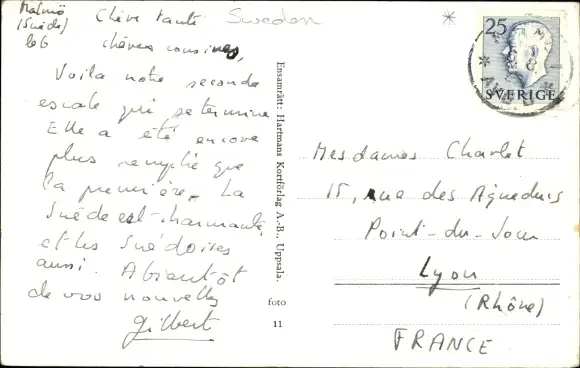 Malmö
(Suède)
le 6
Chère tante Sweden
chères cousines,
Voila notre seconde
escale qui se termine
Elle a été encore
plus remplie que
la première. La
Suède est charmante,
et les Suédoises
aussi. A bientôt
de vos nouvelles
Gilbert
Ensamrätt: Hartmans Kortförlag A.-B., Uppsala.
foto
11
25
SVERIGE
Mesdames Charlet
15, rue des Aqueducs
Point-du-Jour
Lyon
(Rhône)
FRANCE